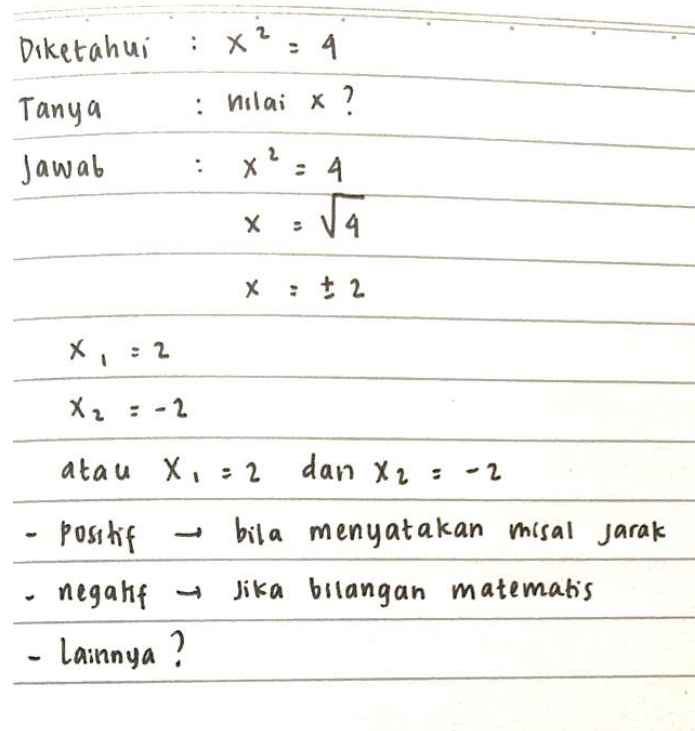 Diketahui : x² = 4
Tanya : nilai x ?
Jawab : x² = 4
x = √4
x = ± 2
x₁ = 2
x₂ = -2
atau x₁ = 2 dan x₂ = -2
- positif → bila menyatakan misal jarak
- negatif → jika bilangan matematis
- Lainnya ?